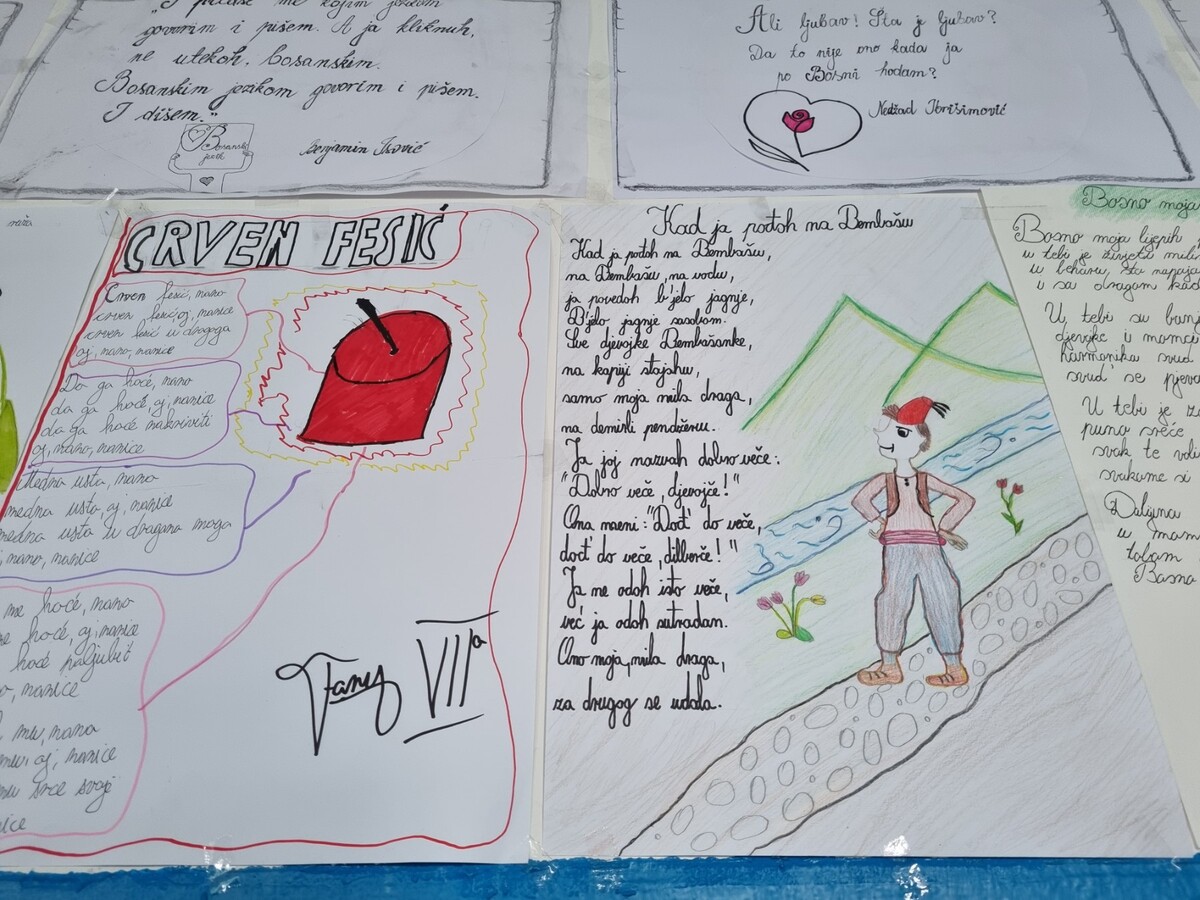 "I pitaše me kojim jezikom
govorim i pišem. A ja kliknuh,
ne utekoh, bosanskim.
Bosanskim jezikom govorim i pišem.
I dišem."
Bosanski
jezik
Benjamin Isović
Ali ljubav! Šta je ljubav?
Da to nije ono kada ja
po Bosni hodam?
Nedžad Ibrišimović
naša
CRVEN FESIĆ
Crven fesić, nano
crven fesić oj, nanice
crven fesić u dragoga
oj, nano, nanice
Da ga hoće, nano
da ga hoće, oj, nanice
da ga hoće nakriviti
oj, nano, nanice
Medna usta, nano
medna usta, oj, nanice
medna usta u dragana moga
nano, nanice
me hoće, nano
hoće, oj, nanice
hoće poljubit
nanice
mu, nano
oj, nanice
srce svoje
VIIa
Kad ja pođoh na Bembašu
Kad ja pođoh na Bembašu,
na Bembašu, na vodu,
ja povedoh b'jelo jagnje,
B'jelo jagnje sasobom.
Sve djevojke Bembašanke,
na kapiji stajahu,
samo moja mila draga,
na demirli pendžeru.
Ja joj nazvah dobro veče:
"Dobro veče, djevojče!"
Ona meni: "Dođ' do veče,
dođ' do veče, dilberče!"
Ja ne odoh isto veče,
već ja odoh sutradan.
Ono moja, mila draga,
za drugog se udala.
Bosno moja
Bosno moja lijepih
u tebi je živjeti
u beharu, što
u sa dragom kad
U tebi su
djevojke i momci
harmonika svud
svud' se pjeva
U tebi je
puno sreće
svak te voli
svakome si
Daljina
u mom
tobom
Bosna